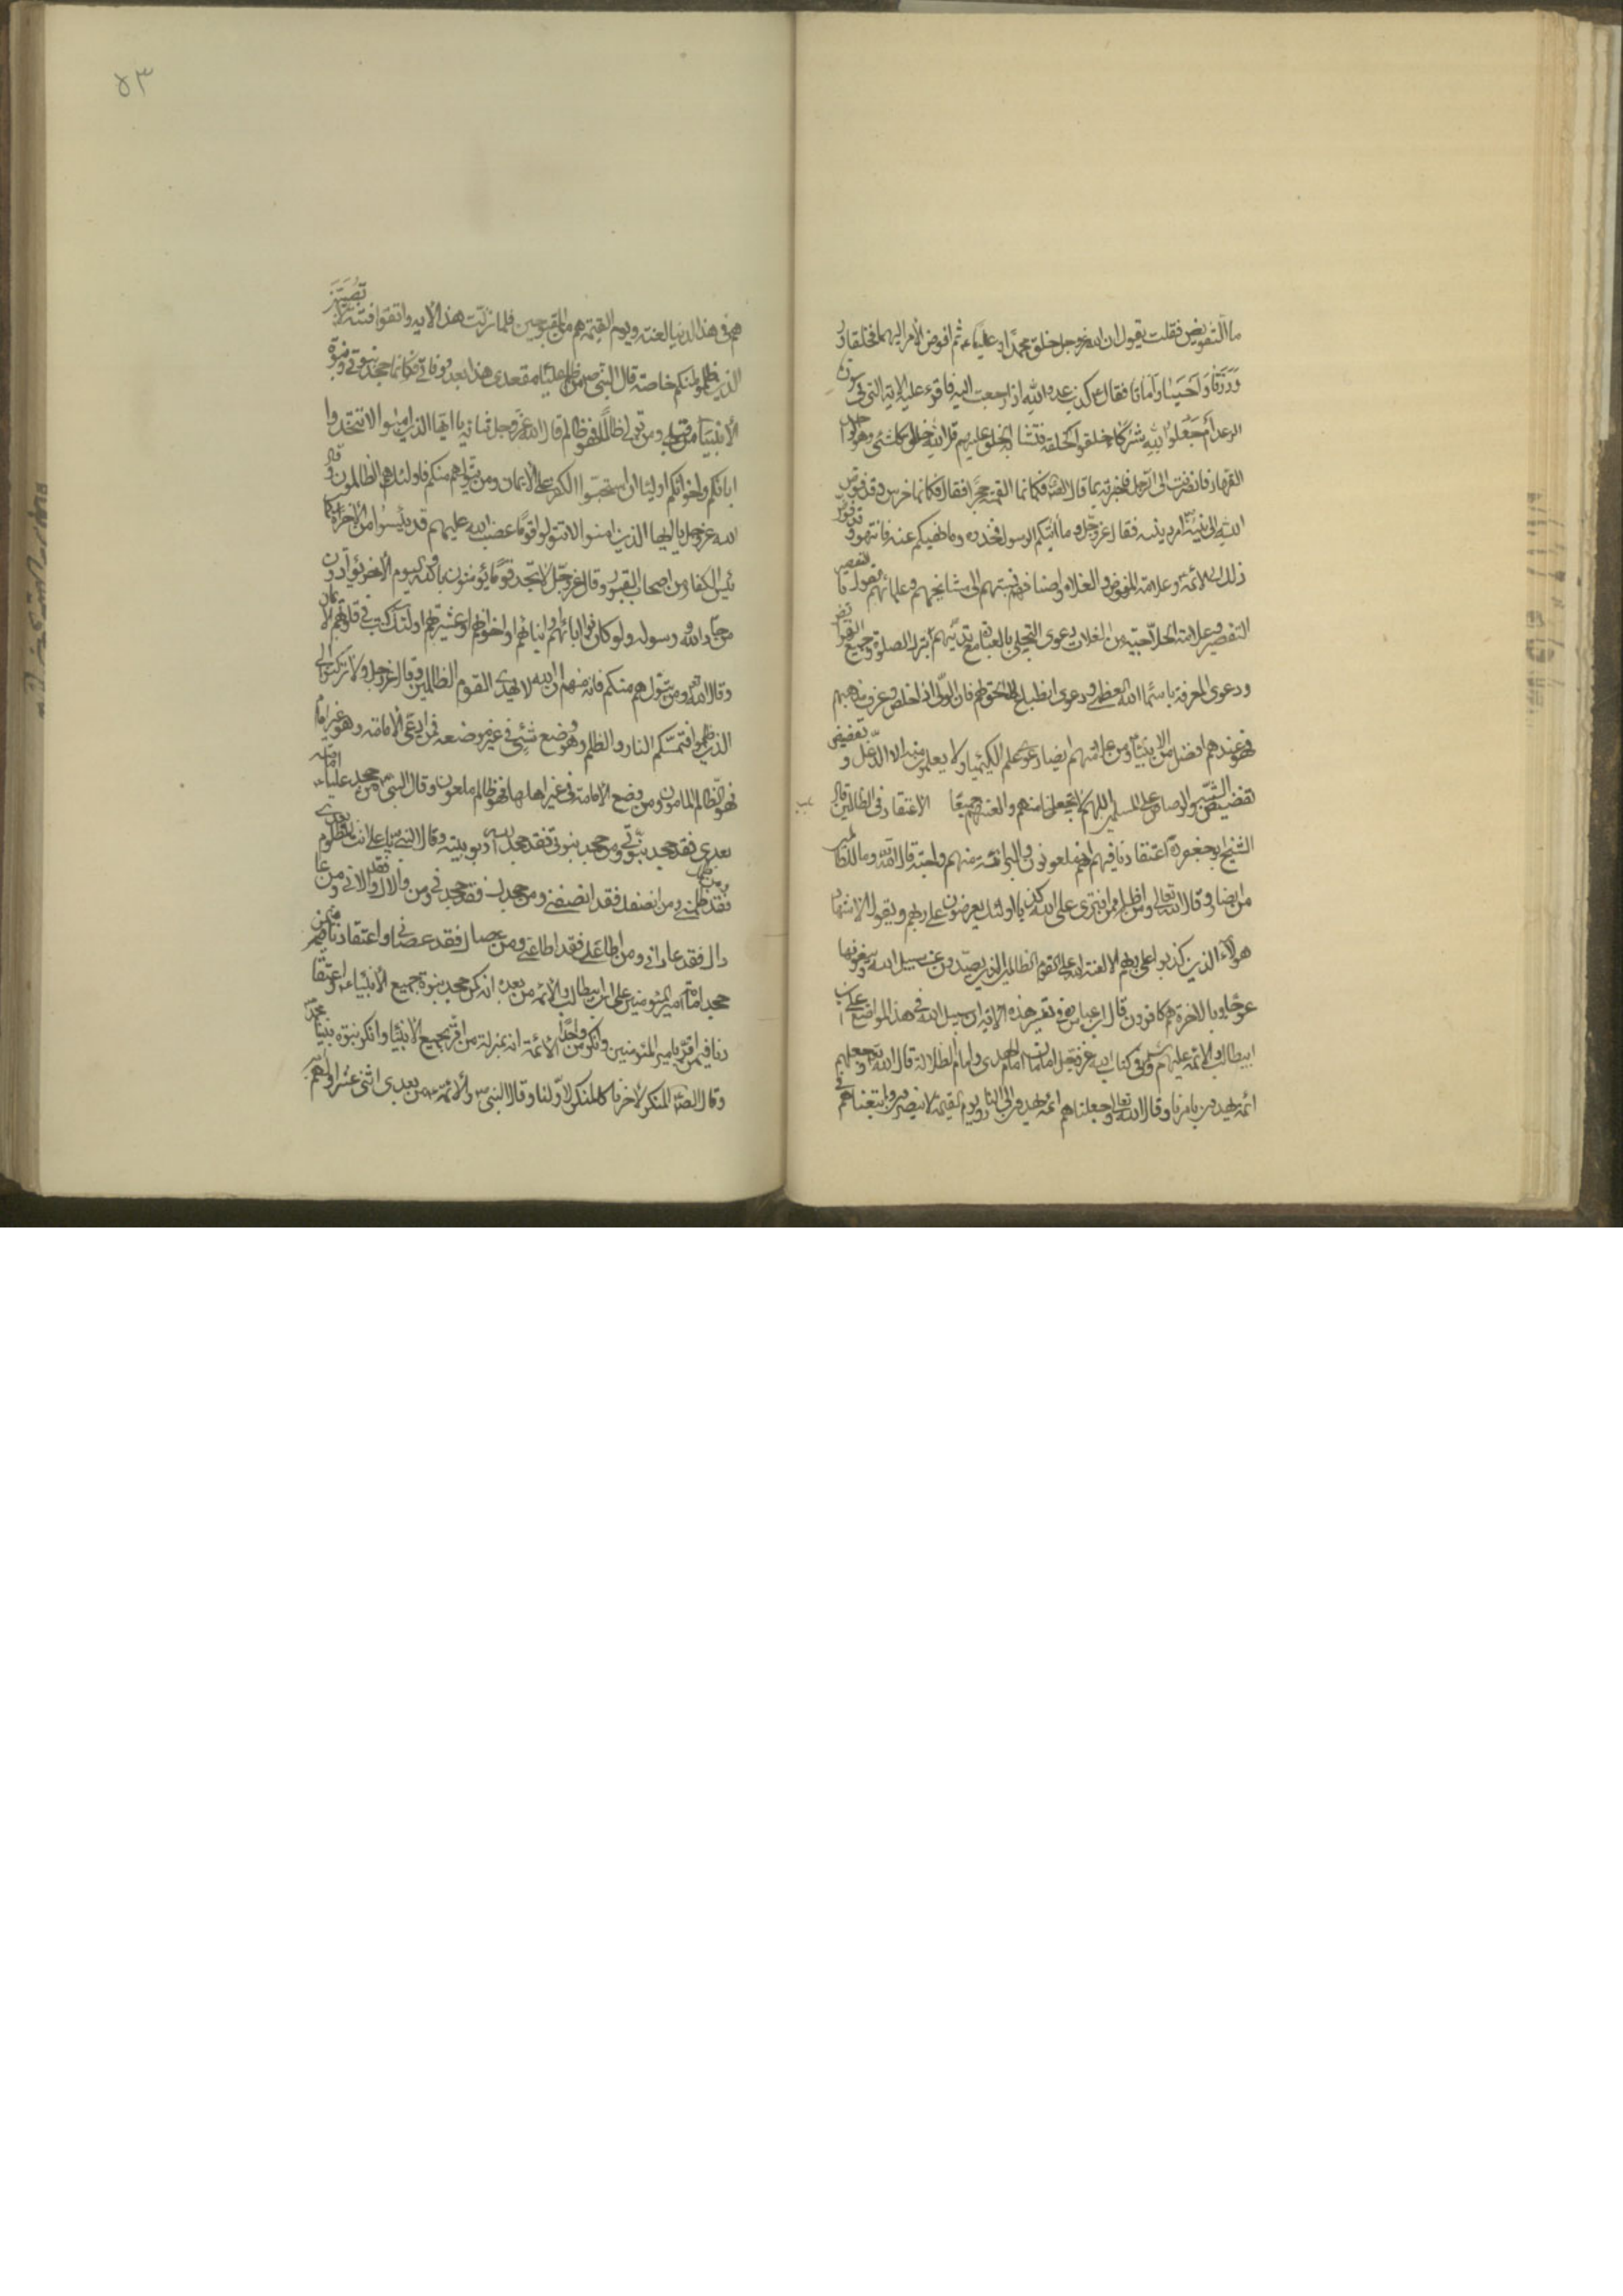 ما التفويض فقلت يقول ان الله عزوجل خلق محمدا وعليا ثم فوض الامر اليهما فخلقا و
ورزقا واحييا واماتا فقال ع كذب عدو الله اذا رجعت اليه فاقرء عليه الاية التي في سورة
الرعد ام جعلوا لله شركاء خلقوا كخلقه فتشابه الخلق عليهم قل الله خالق كل شئ وهو الواحد
القهار فانصرفت الى الرجل فاخبرته بما قال الصادق فكانما القمته حجرا او قال فكانما خرس وقد فوض
الله الى نبيه امر دينه فقال عزوجل وما اتيكم الرسول فخذوه وما نهيكم عنه فانتهوا وقد فوض
ذلك الى الائمة وعلامة المفوضة والغلاة واصنافهم نسبتهم الى مشايخهم وعلمائهم القول بالتقصير
التقصير وعلامة الحلاجية من الغلات دعوى التجلي بالعبادة مع تدينهم بترك الصلوة وجميع الفرائض
ودعوى المعرفة باسماء الله العظمى ودعوى انطباع الحق لهم فان الولي اذا خلص وعرف مذهبهم
فهو عندهم افضل من الانبياء ومن علامتهم ايضا دعوى علم الكيميا ولا يعلمون منه الا الدغل و
الشبه والرصاص على المسلمين اللهم لا تجعلنا منهم والعنهم جميعا الاعتقاد في الظالمين قال
الشيخ ابوجعفر ره اعتقادنا فيهم انهم ملعونون والبرائة منهم واجبة قال الله وما للظالمين
من انصار وقال الله تعالى ومن اظلم ممن افترى على الله كذبا اولئك يعرضون على ربهم ويقول الاشهاد
هولاء الذين كذبوا على ربهم الا لعنة الله على القوم الظالمين الذين يصدون عن سبيل الله ويبغونها
عوجا وبالاخرة هم كافرون قال ابن عباس في تفسير هذه الاية ان سبيل الله في هذا المواضع علي بن
ابيطالب والائمة عليهم السلم وفي كتاب الله عزوجل امامان امام الهدى وامام الظلالة قال الله وجعلهم
ائمة يهدون بامرنا وقال الله تعالى وجعلناهم ائمة يهدون الى النار ويوم القيمة لا ينصرون واتبعناهم في
٥٣
هم في هذا الدنيا لعنة ويوم القيمة هم من المقبوحين فلما نزلت هذا الاية واتقوا فتنة لا تصيبن
الذين ظلموا منكم خاصة قال النبي ص من ظلم عليا مقعدي هذا بعد وفاتي فكانما جحد نبوتي ونبوة
الانبياء من قبلي ومن تولى ظالما فهو ظالم قال الله عزوجل في اية يا ايها الذين امنوا لا تتخذوا
ابائكم واخوانكم اولياء ان استحبوا الكفر على الايمان ومن يتولهم منكم فاولئك هم الظالمون وقال
الله عزوجل يا ايها الذين امنوا لا تتولوا قوما غضب الله عليهم قد يئسوا من الاخرة كما
يئس الكفار من اصحاب القبور وقال عزوجل لا تجد قوما يؤمنون بالله واليوم الاخر يوادون
من حاد الله ورسوله ولو كانوا ابائهم او ابنائهم او اخوانهم او عشيرتهم اولئك كتب في قلوبهم الايمان
وقال الله ومن يتولهم منكم فانه منهم ان الله لا يهدي القوم الظالمين وقال عزوجل ولا تركنوا الى
الذين ظلموا فتمسكم النار والظلم وهو وضع شئ في غير موضعه فمن ادعى الامامة وهو غير امام
فهو الظالم الملعون ومن وضع الامامة في غير اهلها فهو ظالم ملعون وقال النبي ص من جحد عليا امامته
بعدي فقد جحد نبوتي ومن جحد نبوتي فقد جحد الله ربوبيته وقال النبي ص يا علي انت المظلوم بعدي
ومن ظلمك فقد ظلمني ومن انصفك فقد انصفني ومن جحدك فقد جحدني ومن والاك فقد والاني ومن عا
داك فقد عاداني ومن اطاعك فقد اطاعني ومن عصاك فقد عصاني واعتقادنا فيمن
جحد امامة امير المؤمنين علي ابن ابيطالب والائمة من بعده انه كمن جحد نبوة جميع الانبياء واعتقا
دنا فيمن اقر بامير المؤمنين وانكر واحدا من الائمة انه بمنزلة من اقر بجميع الانبياء وانكر نبوة نبينا محمد
وقال الصادق المنكر لاخرنا كالمنكر لاولنا وقال النبي ص والائمة من بعدي اثنى عشر اولهم